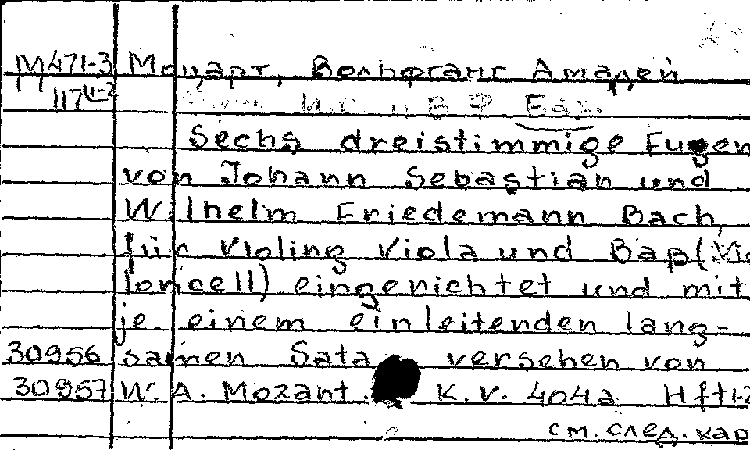 М471-3 Моцарт, Вольфганг Амадей
М 117 И.С. и В Ф Бах.
Sechs dreistimmige Fugen
von Johann Sebastian und
Wilhelm Friedemann Bach,
für Violing Viola und Bap (Vio
loncell) eingerichtet und mit
je einem einleitenden lang-
30956 samen Sata versehen von
30957 W. A. Mozant. K.V. 404a Hft1-2
см. след. кар